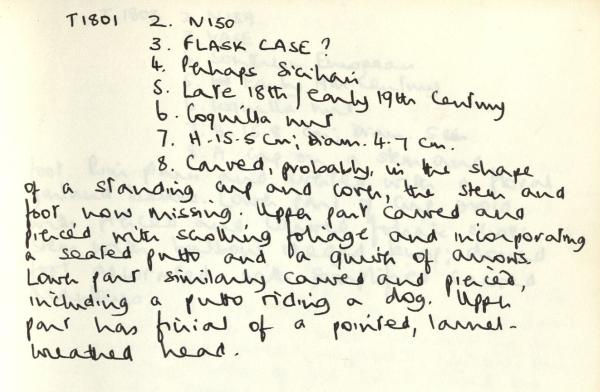 T1801 2. N150
3. FLASK CASE?
4. Perhaps Sicilian
5. Late 18th/early 19th century
6. Coquilla nut
7. H. 15.5 cm; Diam. 4.7 cm.
8. Carved, probably, in the shape
of a standing cup and cover, the stem and
foot now missing. Upper part carved and
pierced with scrolling foliage and incorporating
a seated putto and a quiver of arrows.
Lower part similarly carved and pierced,
including a putto riding a dog. Upper
part has finial of a pointed, laurel-
wreathed head.